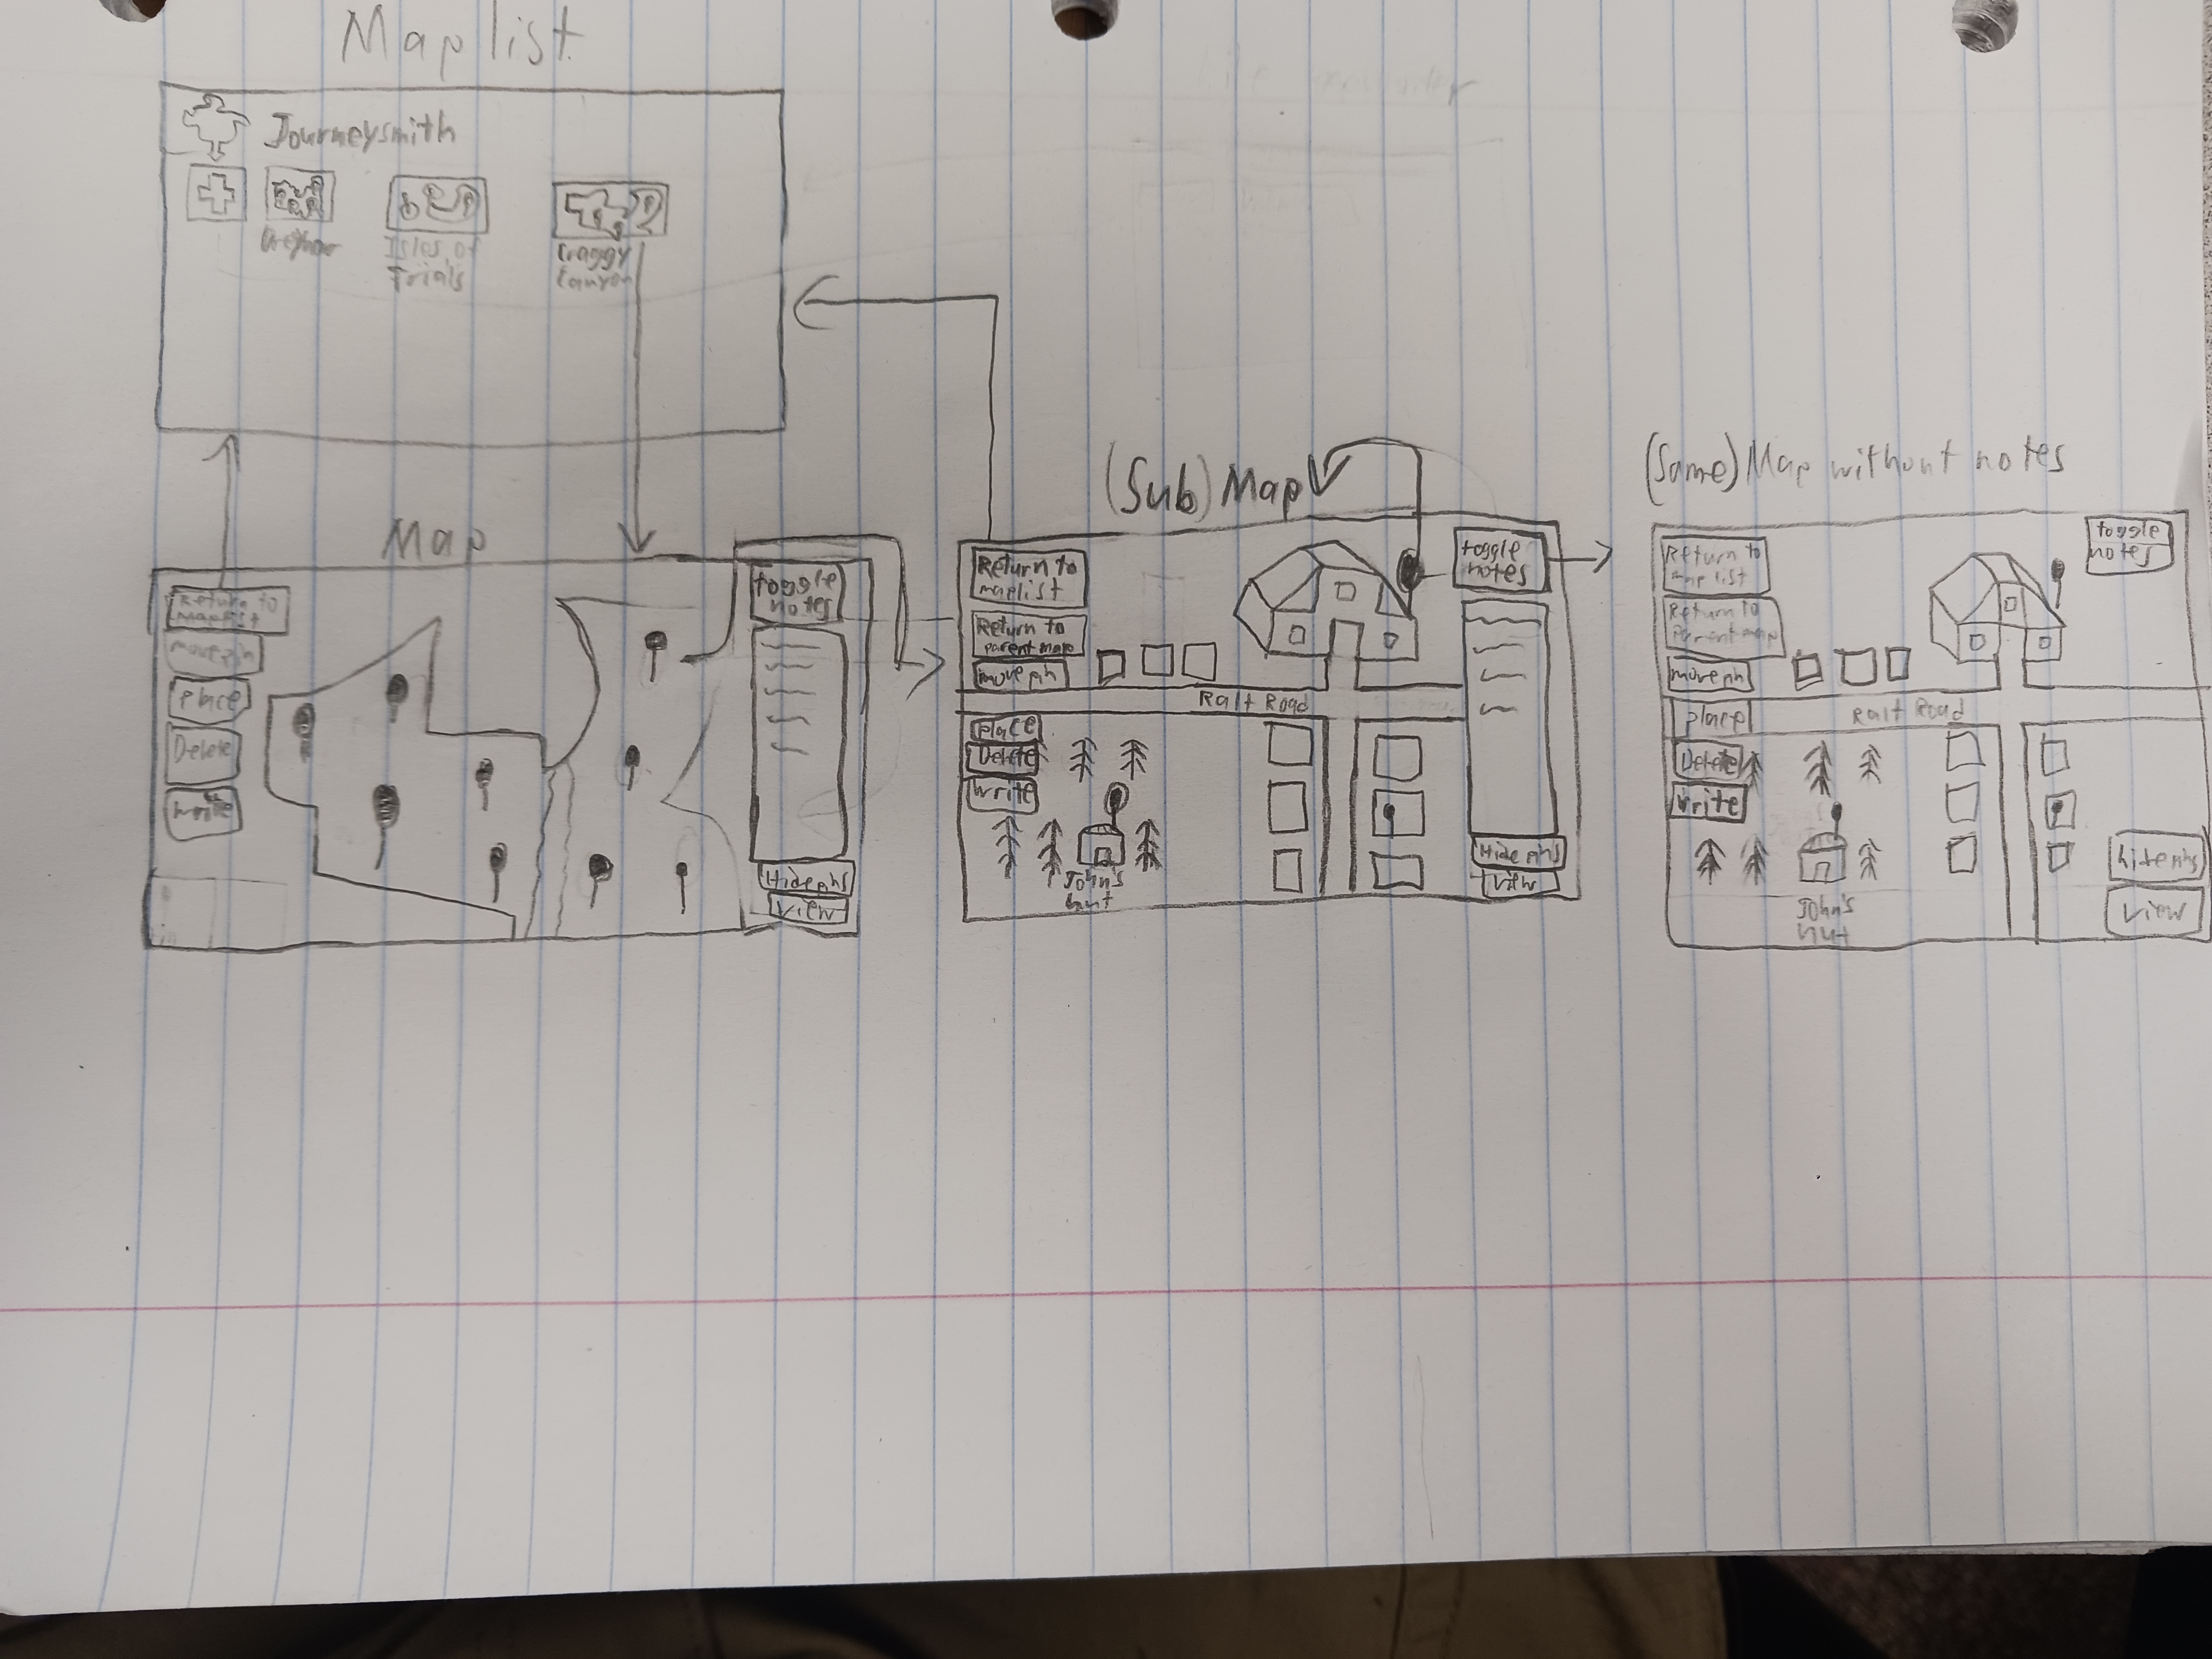 Map list
Journeysmith
Isles of
Trials
Craggy
Canyon
Map
Return to
maplist
move pin
place
Delete
write
toggle
notes
Hide pins
view
(Sub) Map
Return to
maplist
Return to
parent map
move pin
place
Delete
write
Ralt Road
John's
hut
toggle
notes
Hide pins
view
(Same) Map without notes
Return to
map list
Return to
Parent map
move pin
place
Delete
write
Ralt Road
John's
hut
toggle
notes
hide pins
view